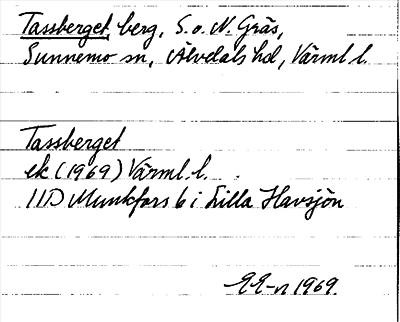 Tassberget, berg, S. o. N. Gräs,
Sunnemo sn, Älvdals hd, Värml. l.
Tassberget
ek (1969) Värml. l.
11D Munkfors 6 i Lilla Havsjön
EE-n 1969.